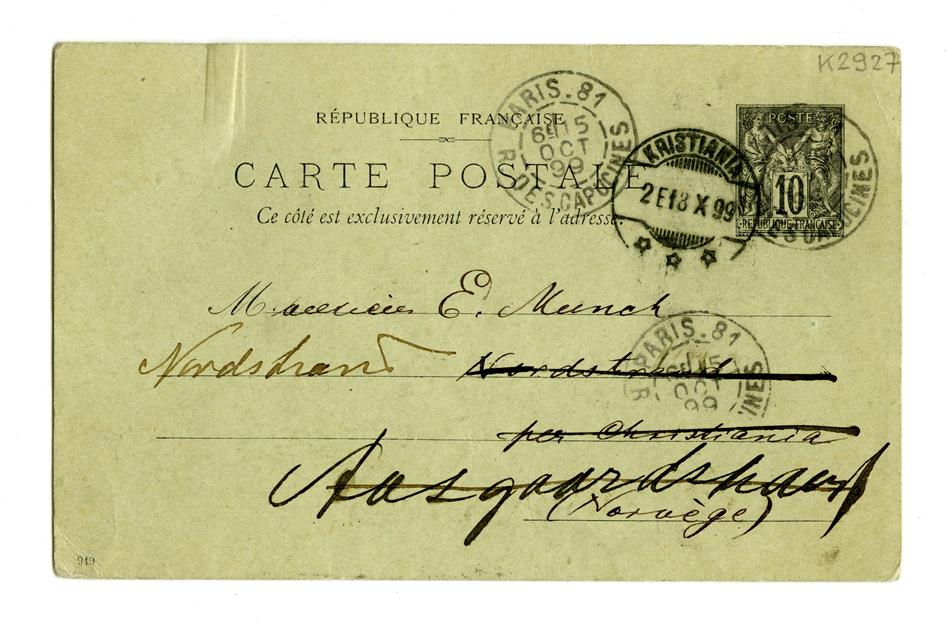 K2927
RÉPUBLIQUE FRANÇAISE
CARTE POSTALE
Ce côté est exclusivement réservé à l'adresse.
PARIS. 81
6E 15
OCT
99
R. DES CAPUCINES
KRISTIANIA
2 E 18 X 99
POSTE
10
REPUBLIQUE FRANÇAISE
CAPUCINES
Monsieur E. Munch
PARIS. 81
15
OCT
99
Nordstrand
Nordstrand
per Christiania
Aasgaardstrand
(Norvège)
919